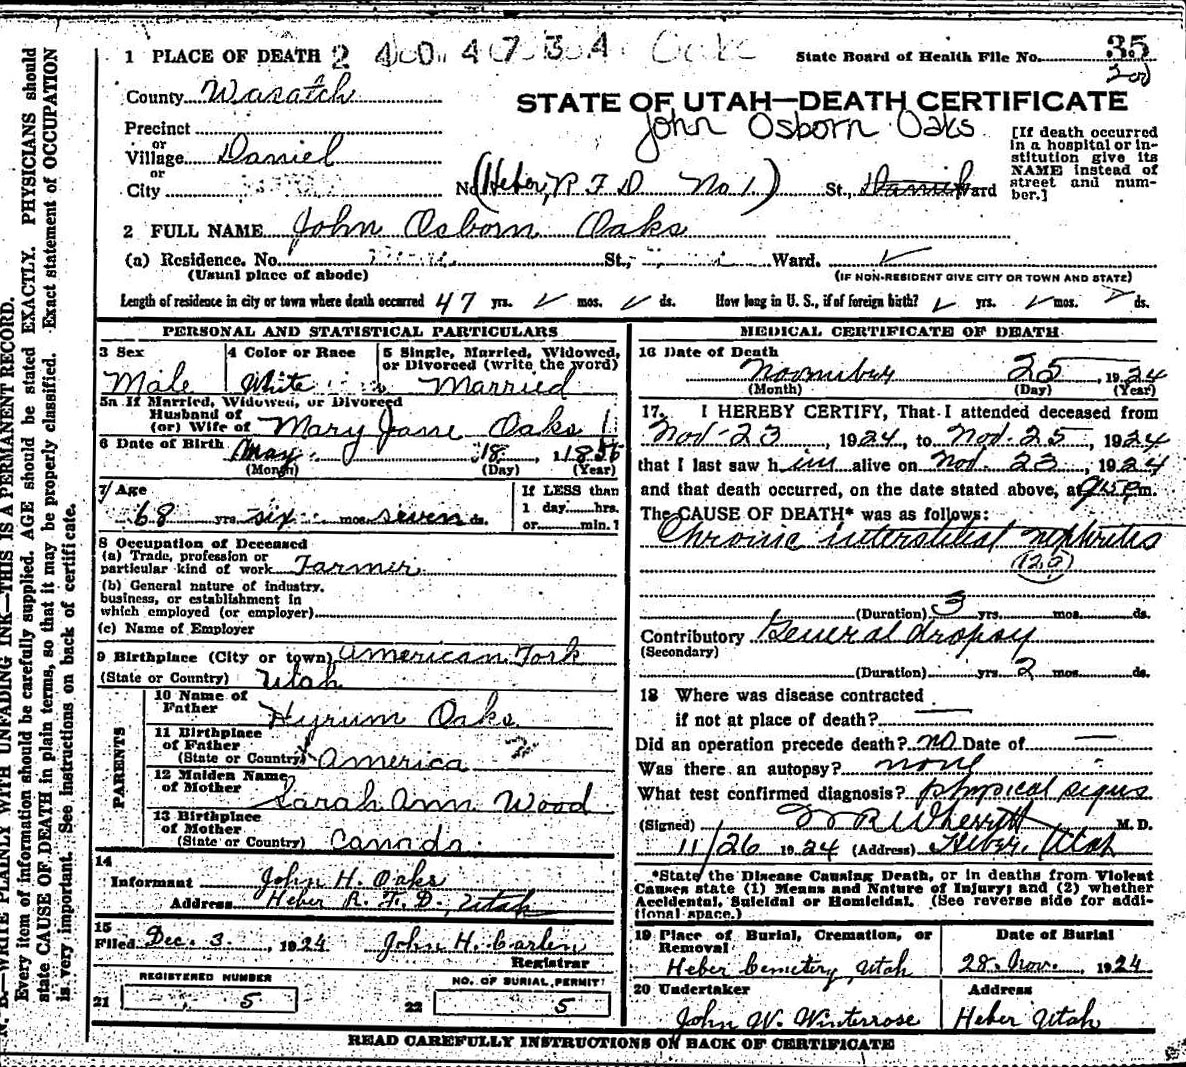 1 PLACE OF DEATH 2 4 0 4 7 3 4 Oaks
State Board of Health File No. 35
200
County Wasatch
STATE OF UTAH—DEATH CERTIFICATE
John Osborn Oaks
Precinct
or
Village Daniel
or
City
No (Heber, R F D No 1) St., Daniel Ward
[If death occurred
in a hospital or in-
stitution give its
NAME instead of
street and num-
ber.]
2 FULL NAME John Osborn Oaks
(a) Residence. No. St., Ward.
(Usual place of abode)
(IF NON-RESIDENT GIVE CITY OR TOWN AND STATE)
Length of residence in city or town where death occurred 47 yrs. mos. ds. How long in U. S., if of foreign birth? yrs. mos. ds.
PERSONAL AND STATISTICAL PARTICULARS
3 Sex
Male
4 Color or Race
White
5 Single, Married, Widowed,
or Divorced (write the word)
Married
5a If Married, Widowed, or Divorced
Husband of
(or) Wife of Mary Jane Oaks
6 Date of Birth May 18 1856
(Month) (Day) (Year)
7 Age
68 yrs. six mos. seven ds.
If LESS than
1 day......hrs.
or......min.?
8 Occupation of Deceased
(a) Trade, profession or
particular kind of work Farmer
(b) General nature of industry.
business, or establishment in
which employed (or employer)
(c) Name of Employer
9 Birthplace (City or town) American Fork
(State or Country) Utah
PARENTS
10 Name of
Father Hyrum Oaks
11 Birthplace
of Father
(State or Country) America
12 Maiden Name
of Mother Sarah Ann Wood
13 Birthplace
of Mother
(State or Country) Canada
14
Informant John H. Oaks
Address Heber R. F. D., Utah
15
Filed Dec. 3, 1924 John H. Carlen
Registrar
REGISTERED NUMBER
21 5
NO. OF BURIAL PERMIT
22 5
MEDICAL CERTIFICATE OF DEATH
16 Date of Death
November 25, 1924
(Month) (Day) (Year)
17. I HEREBY CERTIFY, That I attended deceased from
Nov-23, 1924, to Nov. 25, 1924
that I last saw him alive on Nov. 23, 1924
and that death occurred, on the date stated above, at 9:15 P.m.
The CAUSE OF DEATH* was as follows:
Chronic interstitial nephritis
(129)
(Duration) 3 yrs. mos. ds.
Contributory General dropsy
(Secondary)
(Duration) yrs. 2 mos. ds.
18 Where was disease contracted
if not at place of death?
Did an operation precede death? no Date of
Was there an autopsy? none
What test confirmed diagnosis? physical signs
(Signed) W R Wherritt M. D.
11/26 1924 (Address) Heber, Utah
*State the Disease Causing Death, or in deaths from Violent
Causes state (1) Means and Nature of Injury; and (2) whether
Accidental, Suicidal or Homicidal. (See reverse side for addi-
tional space.)
19 Place of Burial, Cremation, or
Removal
Heber Cemetery, Utah
Date of Burial
28. Nov., 1924
20 Undertaker
John W. Winterrose
Address
Heber Utah
READ CAREFULLY INSTRUCTIONS ON BACK OF CERTIFICATE
N. B.—WRITE PLAINLY WITH UNFADING INK—THIS IS A PERMANENT RECORD.
Every item of information should be carefully supplied. AGE should be stated EXACTLY. PHYSICIANS should
state CAUSE OF DEATH in plain terms, so that it may be properly classified. Exact statement of OCCUPATION
is very important. See instructions on back of certificate.